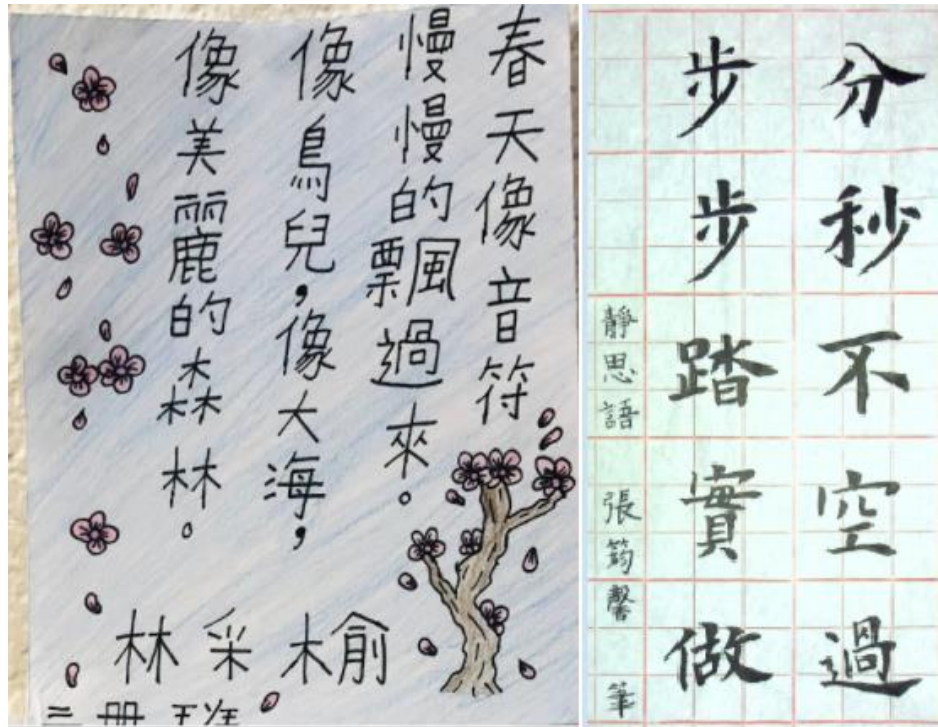 春天像音符
慢慢的飄過來。
像鳥兒,像大海,
像美麗的森林。
林采榆
分秒不空過
步步踏實做
靜思語 張筠馨 筆